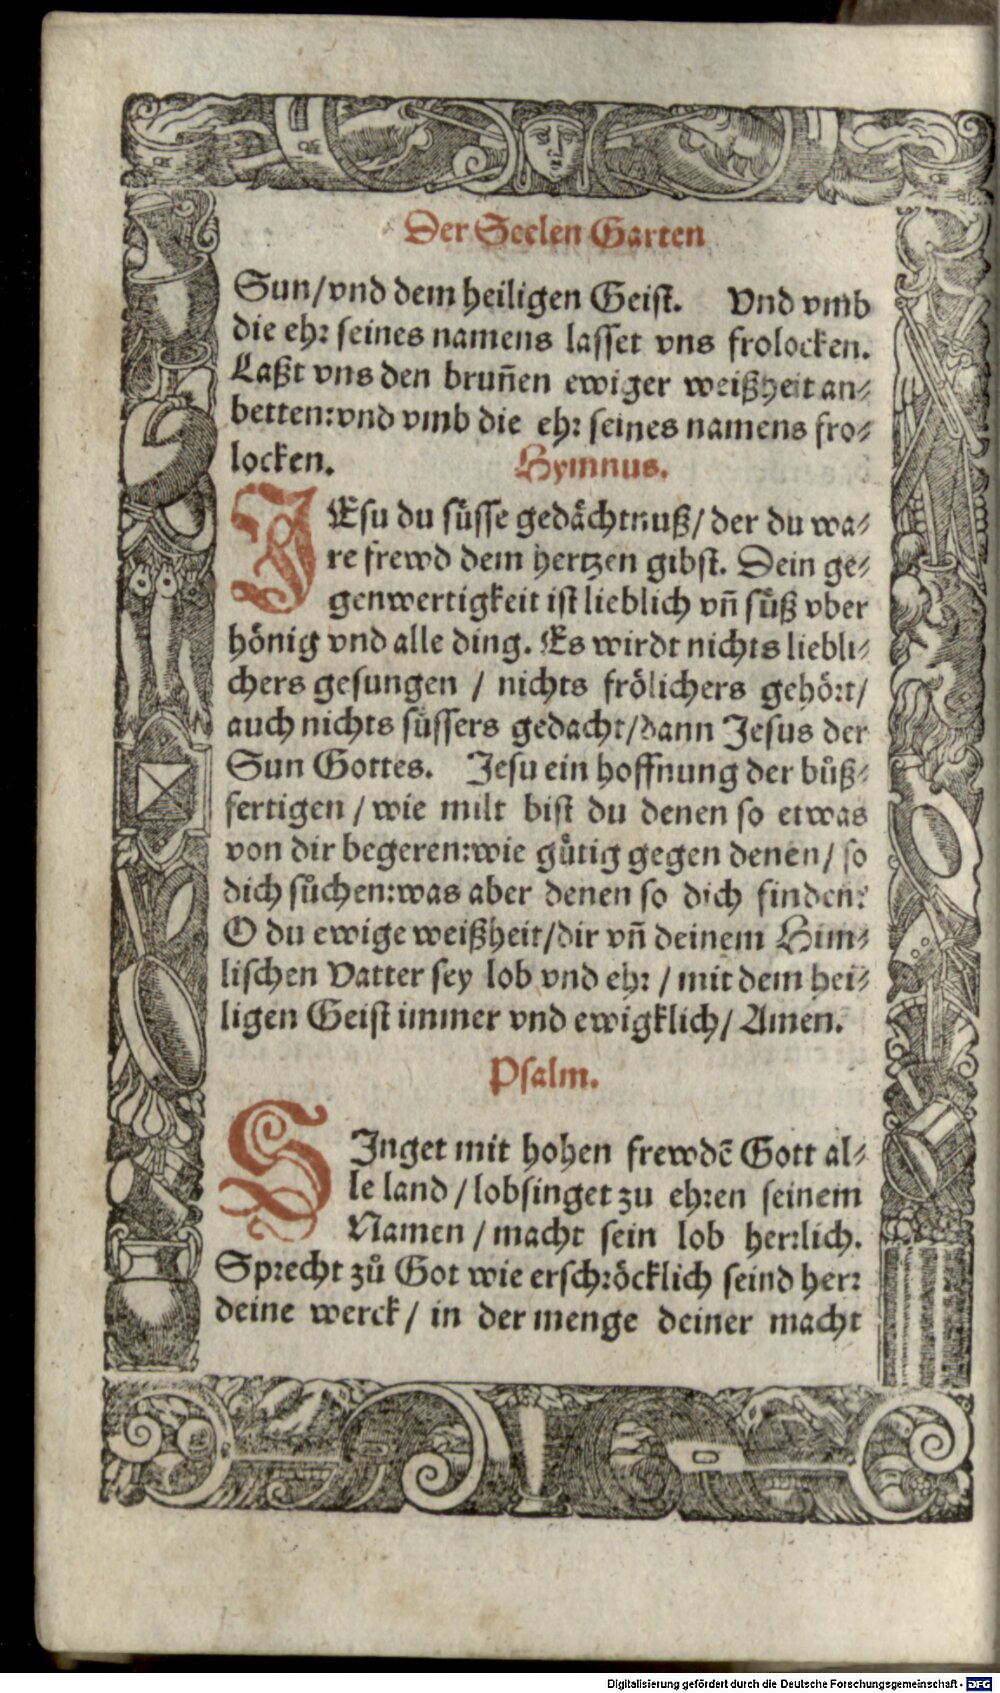 Der Seelen Garten
Sun/vnd dem heiligen Geist. Vnd vmb
die ehr seines namens lasset vns frolocken.
Laßt vns den bruñen ewiger weißheit an-
betten:vnd vmb die ehr seines namens fro-
locken. Hymnus.
JEsu du süsse gedächtnuß/ der du wa-
re frewd dem hertzen gibst. Dein ge-
genwertigkeit ist lieblich vñ süß vber
hönig vnd alle ding. Es wirdt nichts liebli-
chers gesungen / nichts frölichers gehört/
auch nichts süssers gedacht/dann Jesus der
Sun Gottes. Jesu ein hoffnung der bůß-
fertigen / wie milt bist du denen so etwas
von dir begeren:wie gůtig gegen denen/ so
dich sůchen:was aber denen so dich finden?
O du ewige weißheit/dir vñ deinem Him-
lischen Vatter sey lob vnd ehr / mit dem hei-
ligen Geist immer vnd ewigklich/ Amen.
Psalm.
SInget mit hohen frewdē Gott al-
le land / lobsinget zu ehren seinem
Namen / macht sein lob herrlich.
Sprecht zů Got wie erschröcklich seind herr
deine werck/ in der menge deiner macht
Digitalisierung gefördert durch die Deutsche Forschungsgemeinschaft - DFG